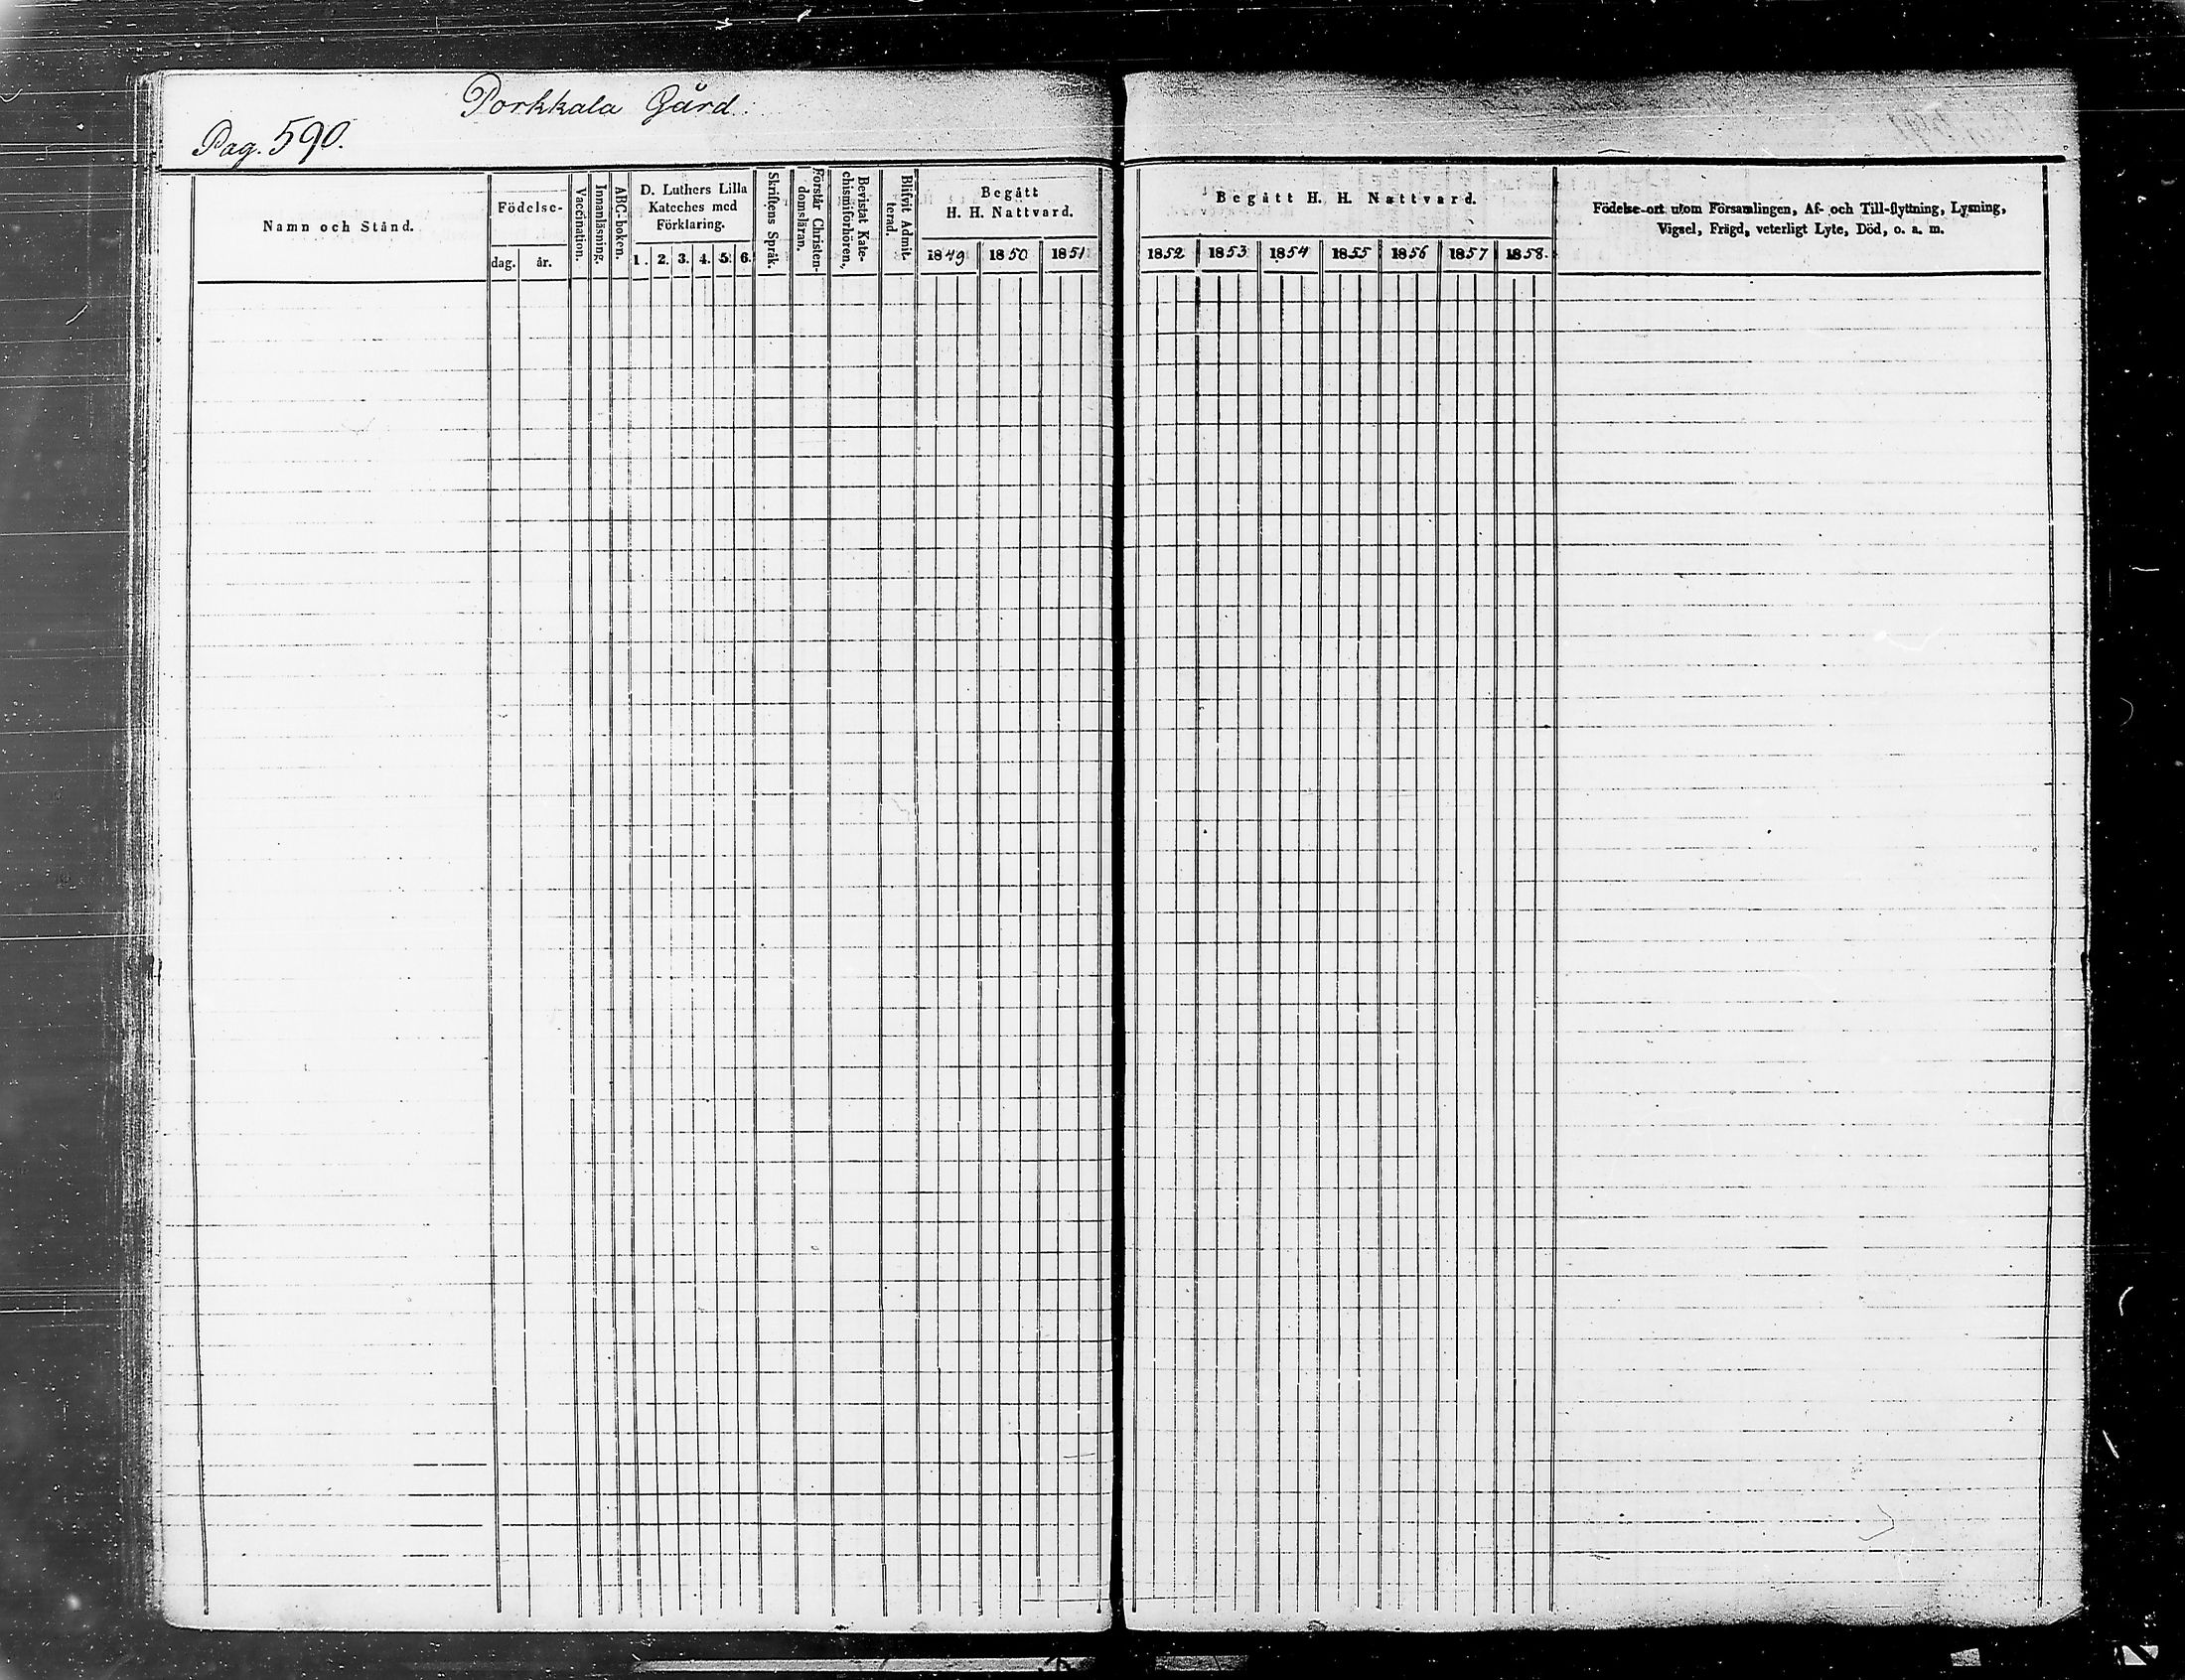 Porkkala Gård.
Pag. 590.
Namn och Stånd.
Födelse-
dag. år.
Vaccination.
Innanläsning.
ABC-boken.
D. Luthers Lilla
Kateches med
Förklaring.
1. 2. 3. 4. 5. 6.
Skriftens Språk.
Förstår Christen-
domsläran.
Bevistat Kate-
chismiförhören.
Blifvit Admit-
terad.
Begått
H. H. Nattvard.
1849 1850 1851
Begått H. H. Nattvard.
1852 1853 1854 1855 1856 1857 1858.
Födelse-ort utom Församlingen, Af- och Till-flyttning, Lysning,
Vigsel, Frägd, veterligt Lyte, Död, o. a. m.